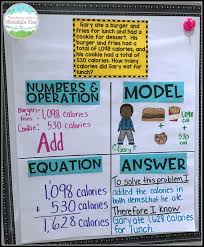 Teaching with a
Mountain View
Gary ate a burger and
fries for lunch and had a
cookie for dessert. His
burger and fries had a
total of 1,098 calories,
and his cookie had a
total of 530 calories. How
many calories did Gary eat for
lunch?
NUMBERS &
OPERATION
Burger+
fries: 1,098 calories
Cookie: 530 calories
Add
MODEL
+
cal
530
cal
Gary
?
EQUATION
1,098 calories
+ 530 calories
1,628 calories
ANSWER
To solve this problem, I
added the calories in
both items that he ate.
Therefore I know
Gary ate 1,628 calories
for lunch.